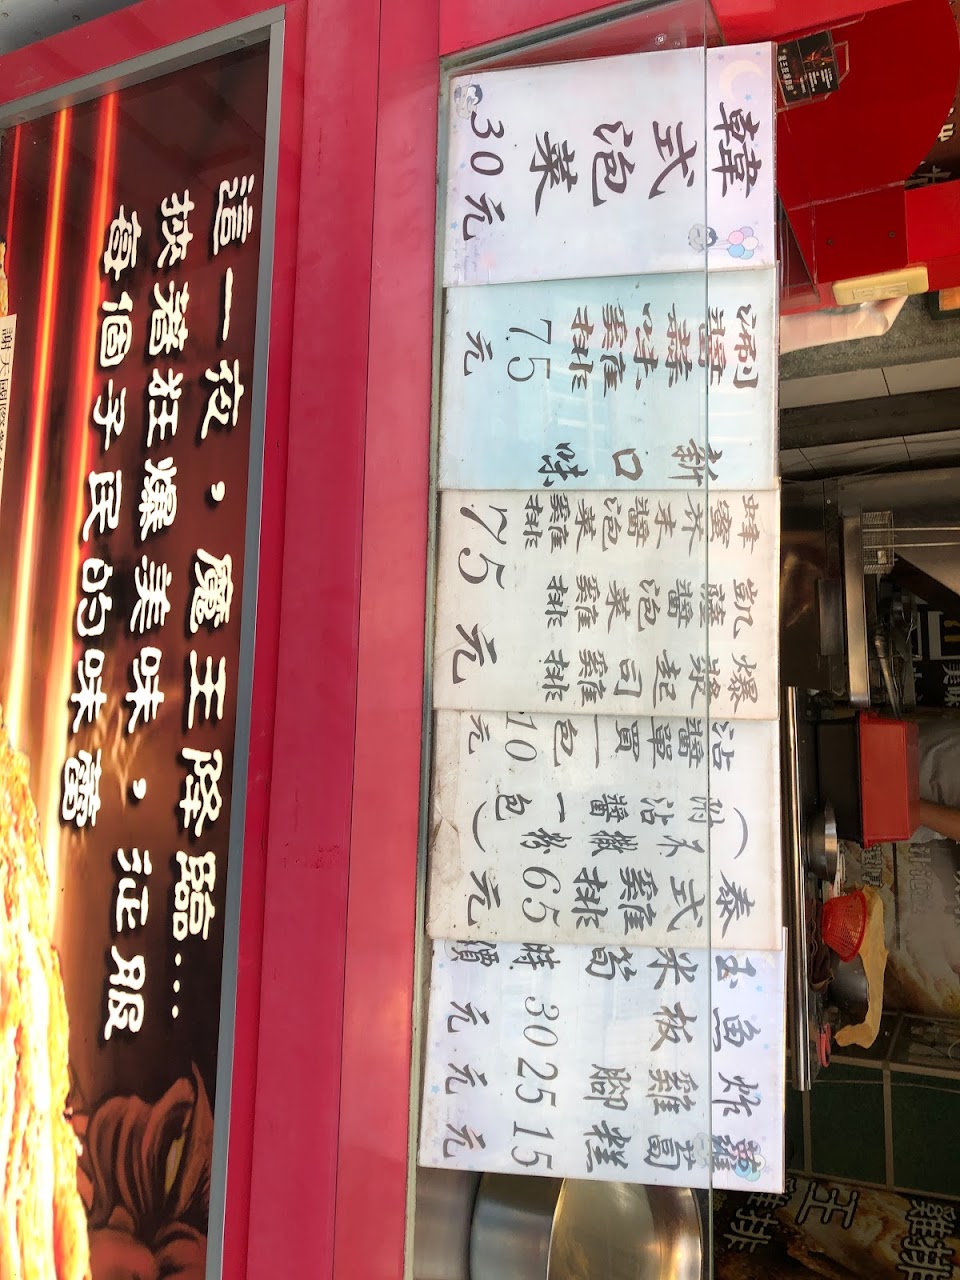 這一夜，魔王降臨...
挾著狂爆美味，征服
每個子民的味蕾
蘿蔔糕15元
炸雞腳25元
魚板30元
玉米筍時價
泰式雞排65元
（附沾醬一包
不撒粉）
沾醬單買一包10元
爆漿起司雞排
凱薩醬泡菜雞排
蜂蜜芥末醬泡菜雞排
75元
新口味
涮醬蒜味雞排
75元
韓式泡菜
30元
王
雞排